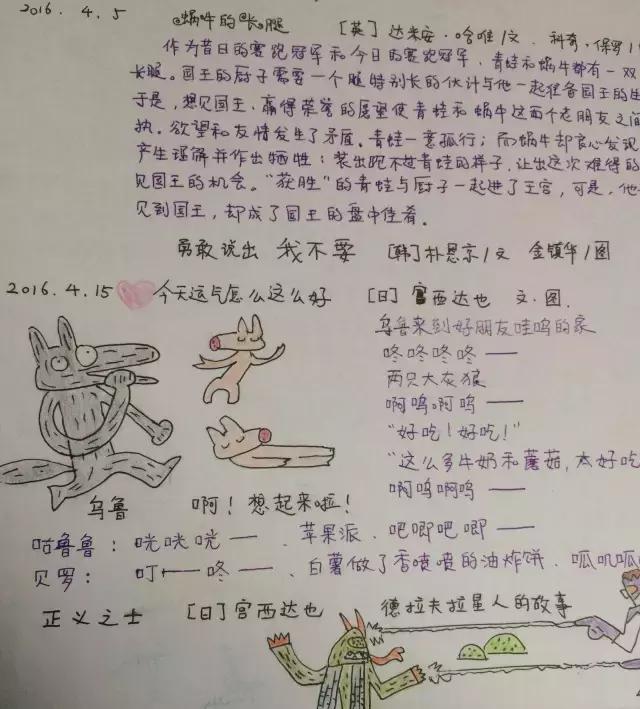 2016. 4. 5 蜗牛的长腿 [英] 达米安·哈唯/文. 科奇·保罗/
作为昔日的赛跑冠军和今日的赛跑冠军,青蛙和蜗牛都有一双
长腿。国王的厨子需要一个腿特别长的伙计与他一起准备国王的生
于是,想见国王、赢得荣誉的愿望使青蛙和蜗牛这两个老朋友之间
执. 欲望和友情发生了矛盾。青蛙一意孤行;而蜗牛却良心发现
产生谅解并作出牺牲:装出跑不过青蛙的样子,让出这次难得的
见国王的机会。“获胜”的青蛙与厨子一起进了王宫,可是,他
见到国王,却成了国王的盘中佳肴。
勇敢说出 我不要 [韩]朴恩京/文 金镇华/图
2016. 4. 15 今天运气怎么这么好 [日] 宫西达也 文·图.
乌鲁来到好朋友哇呜的家
咚咚咚咚——
两只大灰狼
啊呜啊呜——
“好吃!好吃!”
“这么多牛奶和蘑菇,太好吃
啊呜啊呜——
乌鲁 啊!想起来啦!
咕鲁鲁: 咣咣咣——、苹果派、吧唧吧唧——
贝罗: 叮——咚——、白薯做了香喷喷的油炸饼、呱叽呱
正义之士 [日]宫西达也 德拉夫拉星人的故事